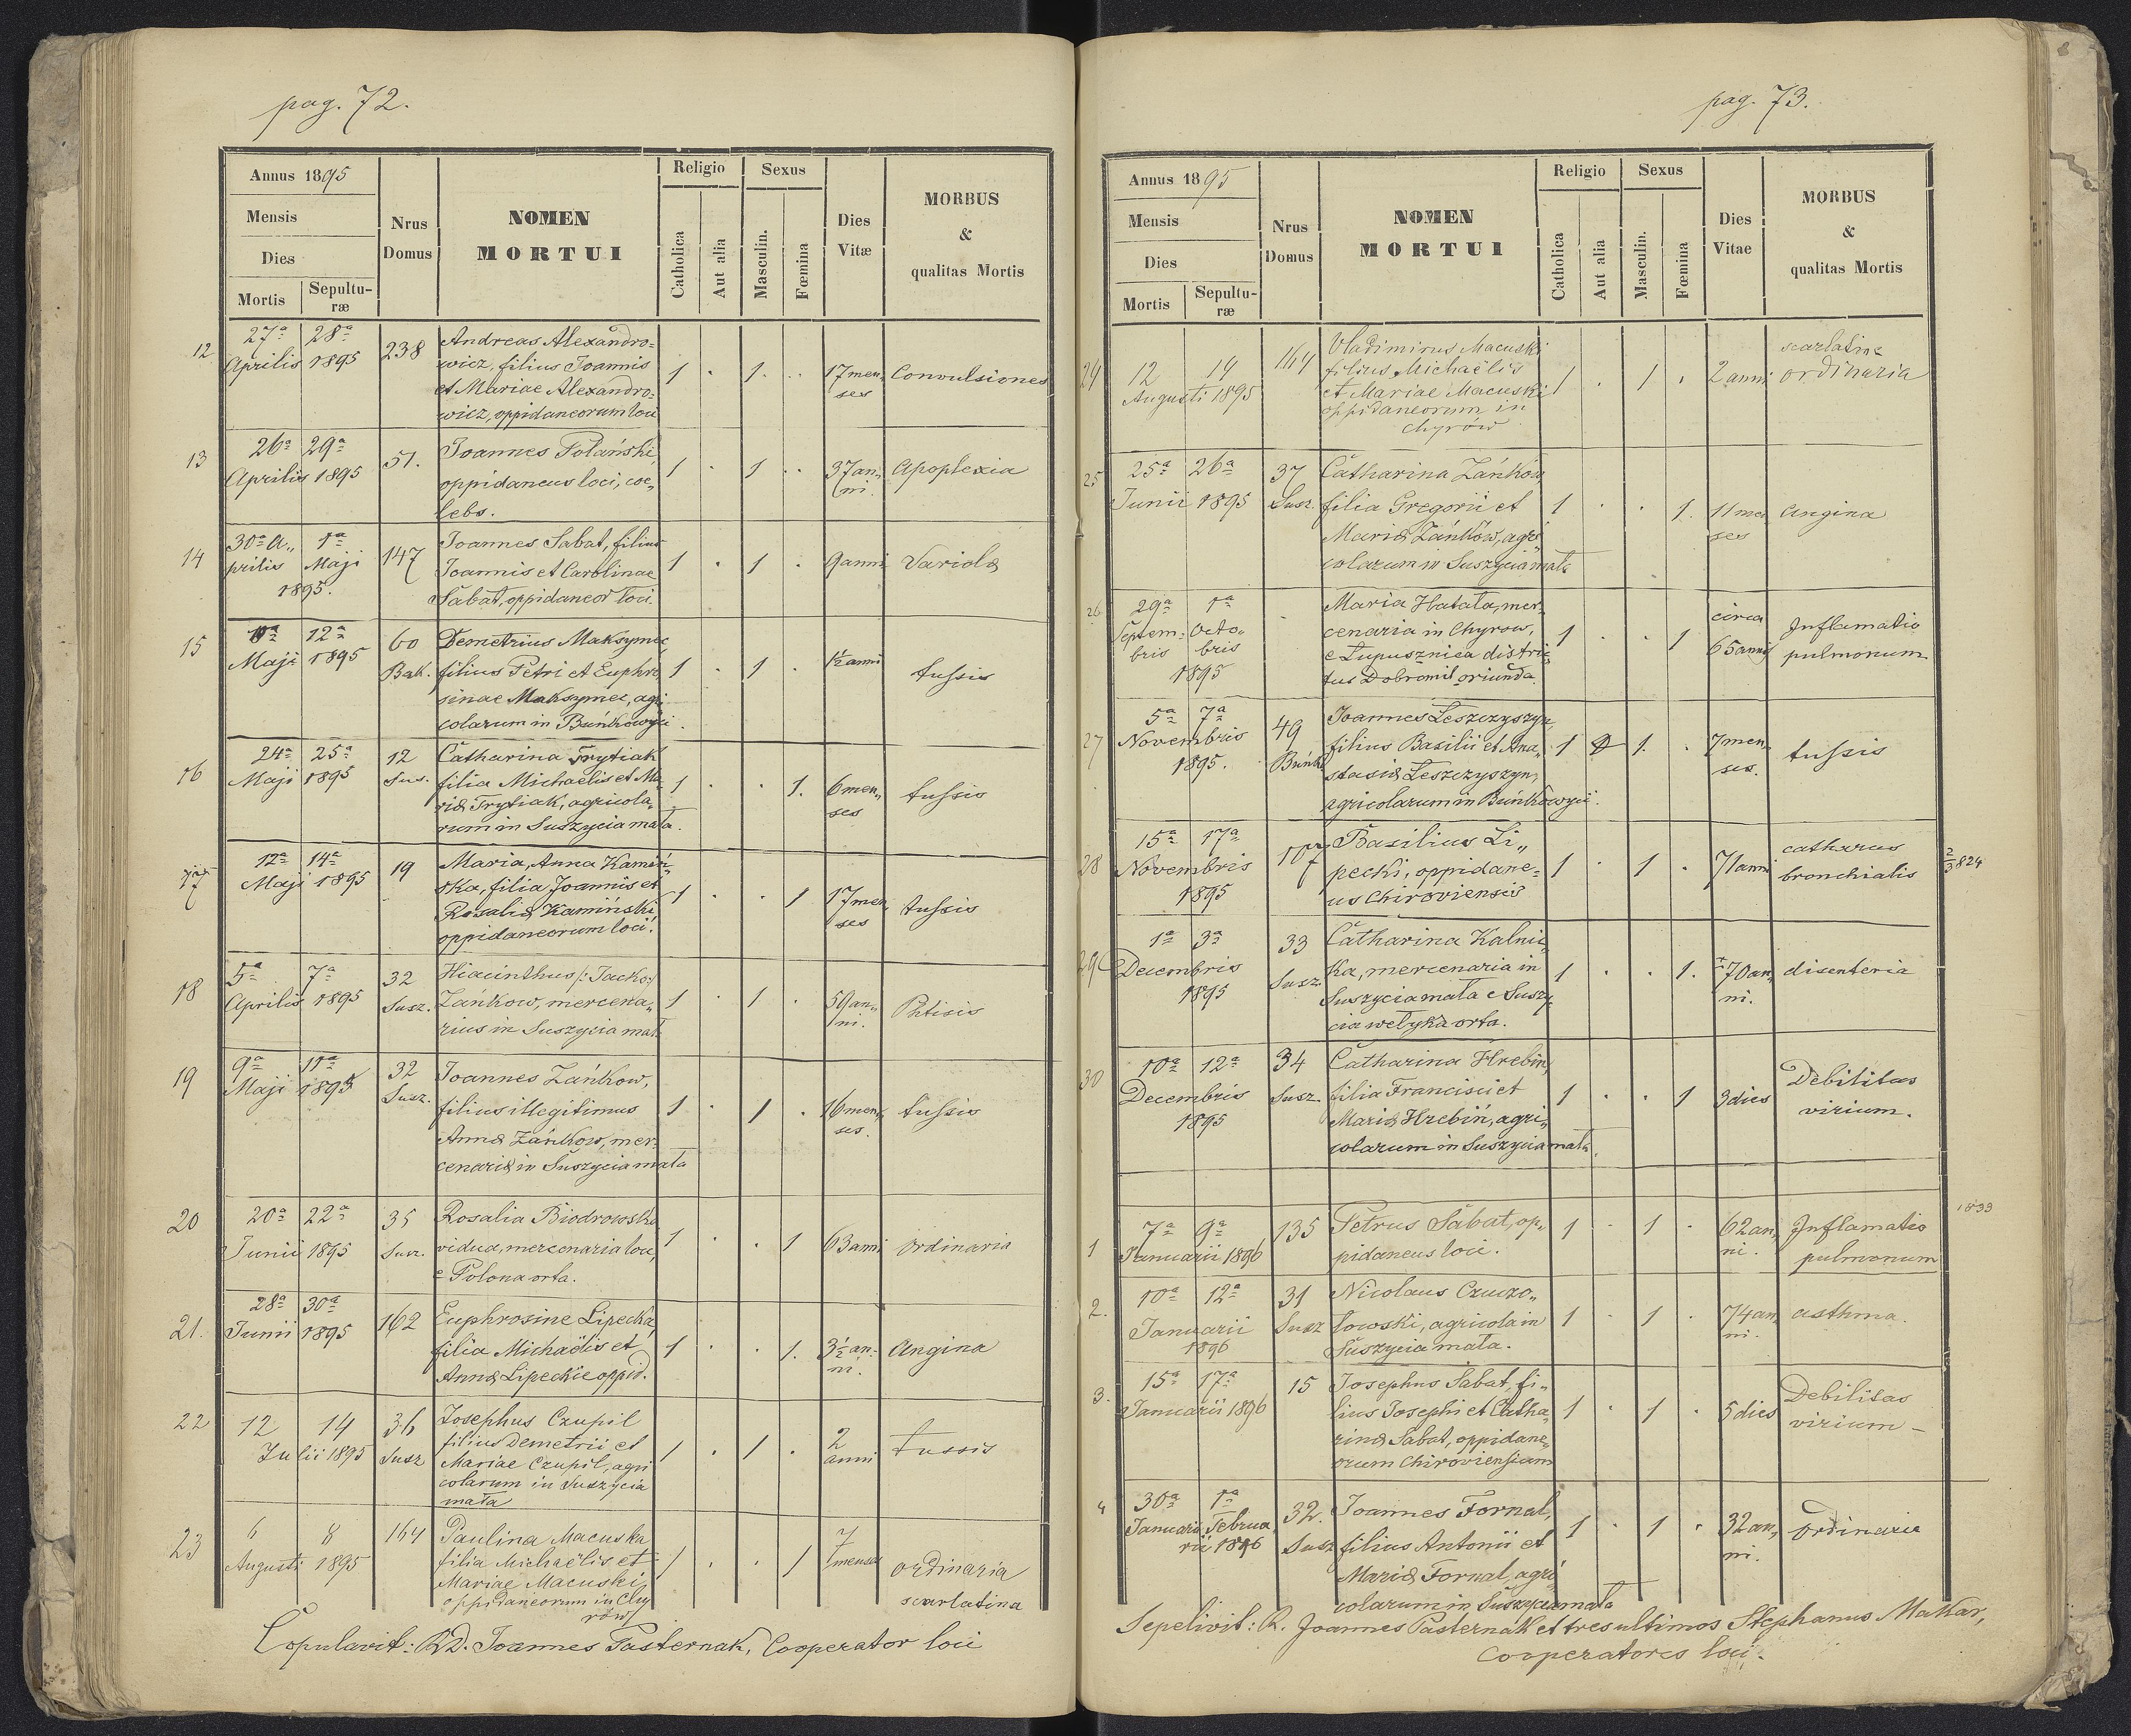 pag. 72.
Annus 1895
Mensis
Dies
Mortis
Sepultu-
ræ
Nrus
Domus
NOMEN
MORTUI
Religio
Catholica
Aut alia
Sexus
Masculin.
Fœmina
Dies
Vitæ
MORBUS
&
qualitas Mortis
12
27ª 28ª
Aprilis 1895
238
Andreas Alexandro=
wicz, filius Joannis
et Mariae Alexandro=
wicz, oppidaneorum loci
1 . 1. .
17 men„
ses
Convulsiones
13
26ª 29ª
Aprilis 1895
51.
Joannes Polański,
oppidaneus loci, coe„
lebs.
1 . 1 .
37 an„
ni.
Apoplexia
14
30ª A„ 1ª
prilis Maji
1895.
147
Joannes Sabat, filius
Joannis et Carolinae
Sabat, oppidaneor loci.
1 . 1 .
9 anni
Variola
15
12ª
Maji 1895
60
Buk.
Demetrius Maksymec,
filius Petri et Euphro„
sinae Maksymec, agri„
colarum in Buńkowyci.
1 . 1 .
½ anni
tussis
16
24ª 25ª
Maji 1895
12
Sus.
Catharina Trytiak
filia Michaelis et Ma„
riæ Trytiak, agricola„
rum in Suszycia mała.
1 . . 1.
6 men„
ses
tussis
17
12ª 14ª
Maji 1895
19
Maria, Anna Kamiń„
ska, filia Joannis et
Rosaliæ Kamiński,
oppidaneorum loci.
1 . . 1
17 men
ses
tussis
18
5ª 7ª
Aprilis 1895
32
Susz.
Hiacinthus /:Jacko:/
Zańkow, mercena„
rius in Suszycia mał.
1 . 1 .
59 an„
ni.
Phtisis
19
9ª 11ª
Maji 1895
32
Susz.
Joannes Zańkow,
filius illegitimus
Annæ Zańkow, mer=
cenariæ in Suszycia mała
1 . 1 .
16 men„
ses.
tussis
20
20ª 22ª
Junii 1895
35
Susz.
Rosalia Biodrowska
vidua, mercenaria loci,
e Polona orta.
1 . . 1
63 anni
ordinaria
21.
28ª 30ª
Junii 1895
162
Euphrosine Lipecka,
filia Michaëlis et
Annæ Lipeckie oppid.
1 . . 1.
3½ an-
ni.
Angina
22
12 14
Julii 1895
36
Susz
Josephus Czupil
filius Demetrii et
Mariae Czupil, agri
colarum in Suszycia
mała
1 . 1 .
2
anni
tussis
23
6 8
Augusti 1895
164
Paulina Macuska
filia Michaëlis et
Mariae Macuski,
oppidaneorum in Chy
rów
1 . . 1
7
menses
ordinaria
scarlatina
Copulavit: RD. Joannes Pasternak, Cooperator loci
pag. 73.
Annus 1895
Mensis
Dies
Mortis
Sepultu-
ræ
Nrus
Domus
NOMEN
MORTUI
Religio
Catholica
Aut alia
Sexus
Masculin.
Fœmina
Dies
Vitae
MORBUS
&
qualitas Mortis
24
12 14
Augusti 1895
164
Vladimirus Macuski
filius Michaëlis
et Mariae Macuski
oppidaneorum in
Chyrów
1 . 1 .
2 anni
scarlatina
ordinaria
25
25ª 26ª
Junii 1895
37
Susz.
Catharina Zańkow,
filia Gregorii et
Mariæ Zańków, agri
colarum in Suszycia mała
1 . . 1.
11 men
ses
Angina
26
29ª 1ª
Septem= Octo„
bris bris
1895
Maria Hatała, mer=
cenaria in Chyrow,
e Łupusznica distric„
tus Dobromil oriunda.
1 . . 1
circa
65 anni
Inflamatio
pulmonum
27
5ª 7ª
Novembris
1895.
49
Buńk
Joannes Leszczyszyn,
filius Basilii et Ana„
stasiæ Leszczyszyn,
agricolarum in Buńkowyci.
1 1. .
7 men„
ses.
tussis
28
15ª 17ª
Novembris
1895
107
Basilius Li„
pecki, oppidane=
us Chiroviensis
1 . 1 .
71 anni
catharus
bronchialis
2/3 824
29
1ª 3ª
Decembris
1895
33
Susz
Catharina Kalnic„
ka, mercenaria in
Suszycia mała e Suszy„
cia wełyka orta.
1 . . 1.
70 an„
ni.
disenteria
30
10ª 12ª
Decembris
1895
34
Susz.
Catharina Hrebiń,
filia Francisci et
Mariæ Hrebiń, agri„
colarum in Suszycia mała.
1 . . 1
3 dies
Debilitas
virium.
1
7ª 9ª
Januarii 1896
135
Petrus Sabat, op„
pidaneus loci.
1 . 1 .
62 an„
ni.
Inflamatio
pulmonum
1833
2.
10ª 12ª
Januarii
1896
31
Susz
Nicolaus Czuczo„
łowski, agricola in
Suszycia mała.
1 . 1 .
74 an
ni.
asthma.
3.
15ª 17ª
Januarii 1896
15
Josephus Sabat, fi„
lius Josephi et Catha„
rinæ Sabat, oppidane„
orum Chiroviensium
1 . 1 .
5 dies
Debilitas
virium –
4
30ª 1ª
Januarii Februa
rii 1896
32.
Susz
Joannes Fornal,
filius Antonii et
Mariæ Fornal, agri
colarum in Suszycia mała
1 . 1 .
32 an„
ni.
ordinaria
Sepelivit: R. Joannes Pasternak et tres ultimos Stephanus Makar,
Cooperatores loci.